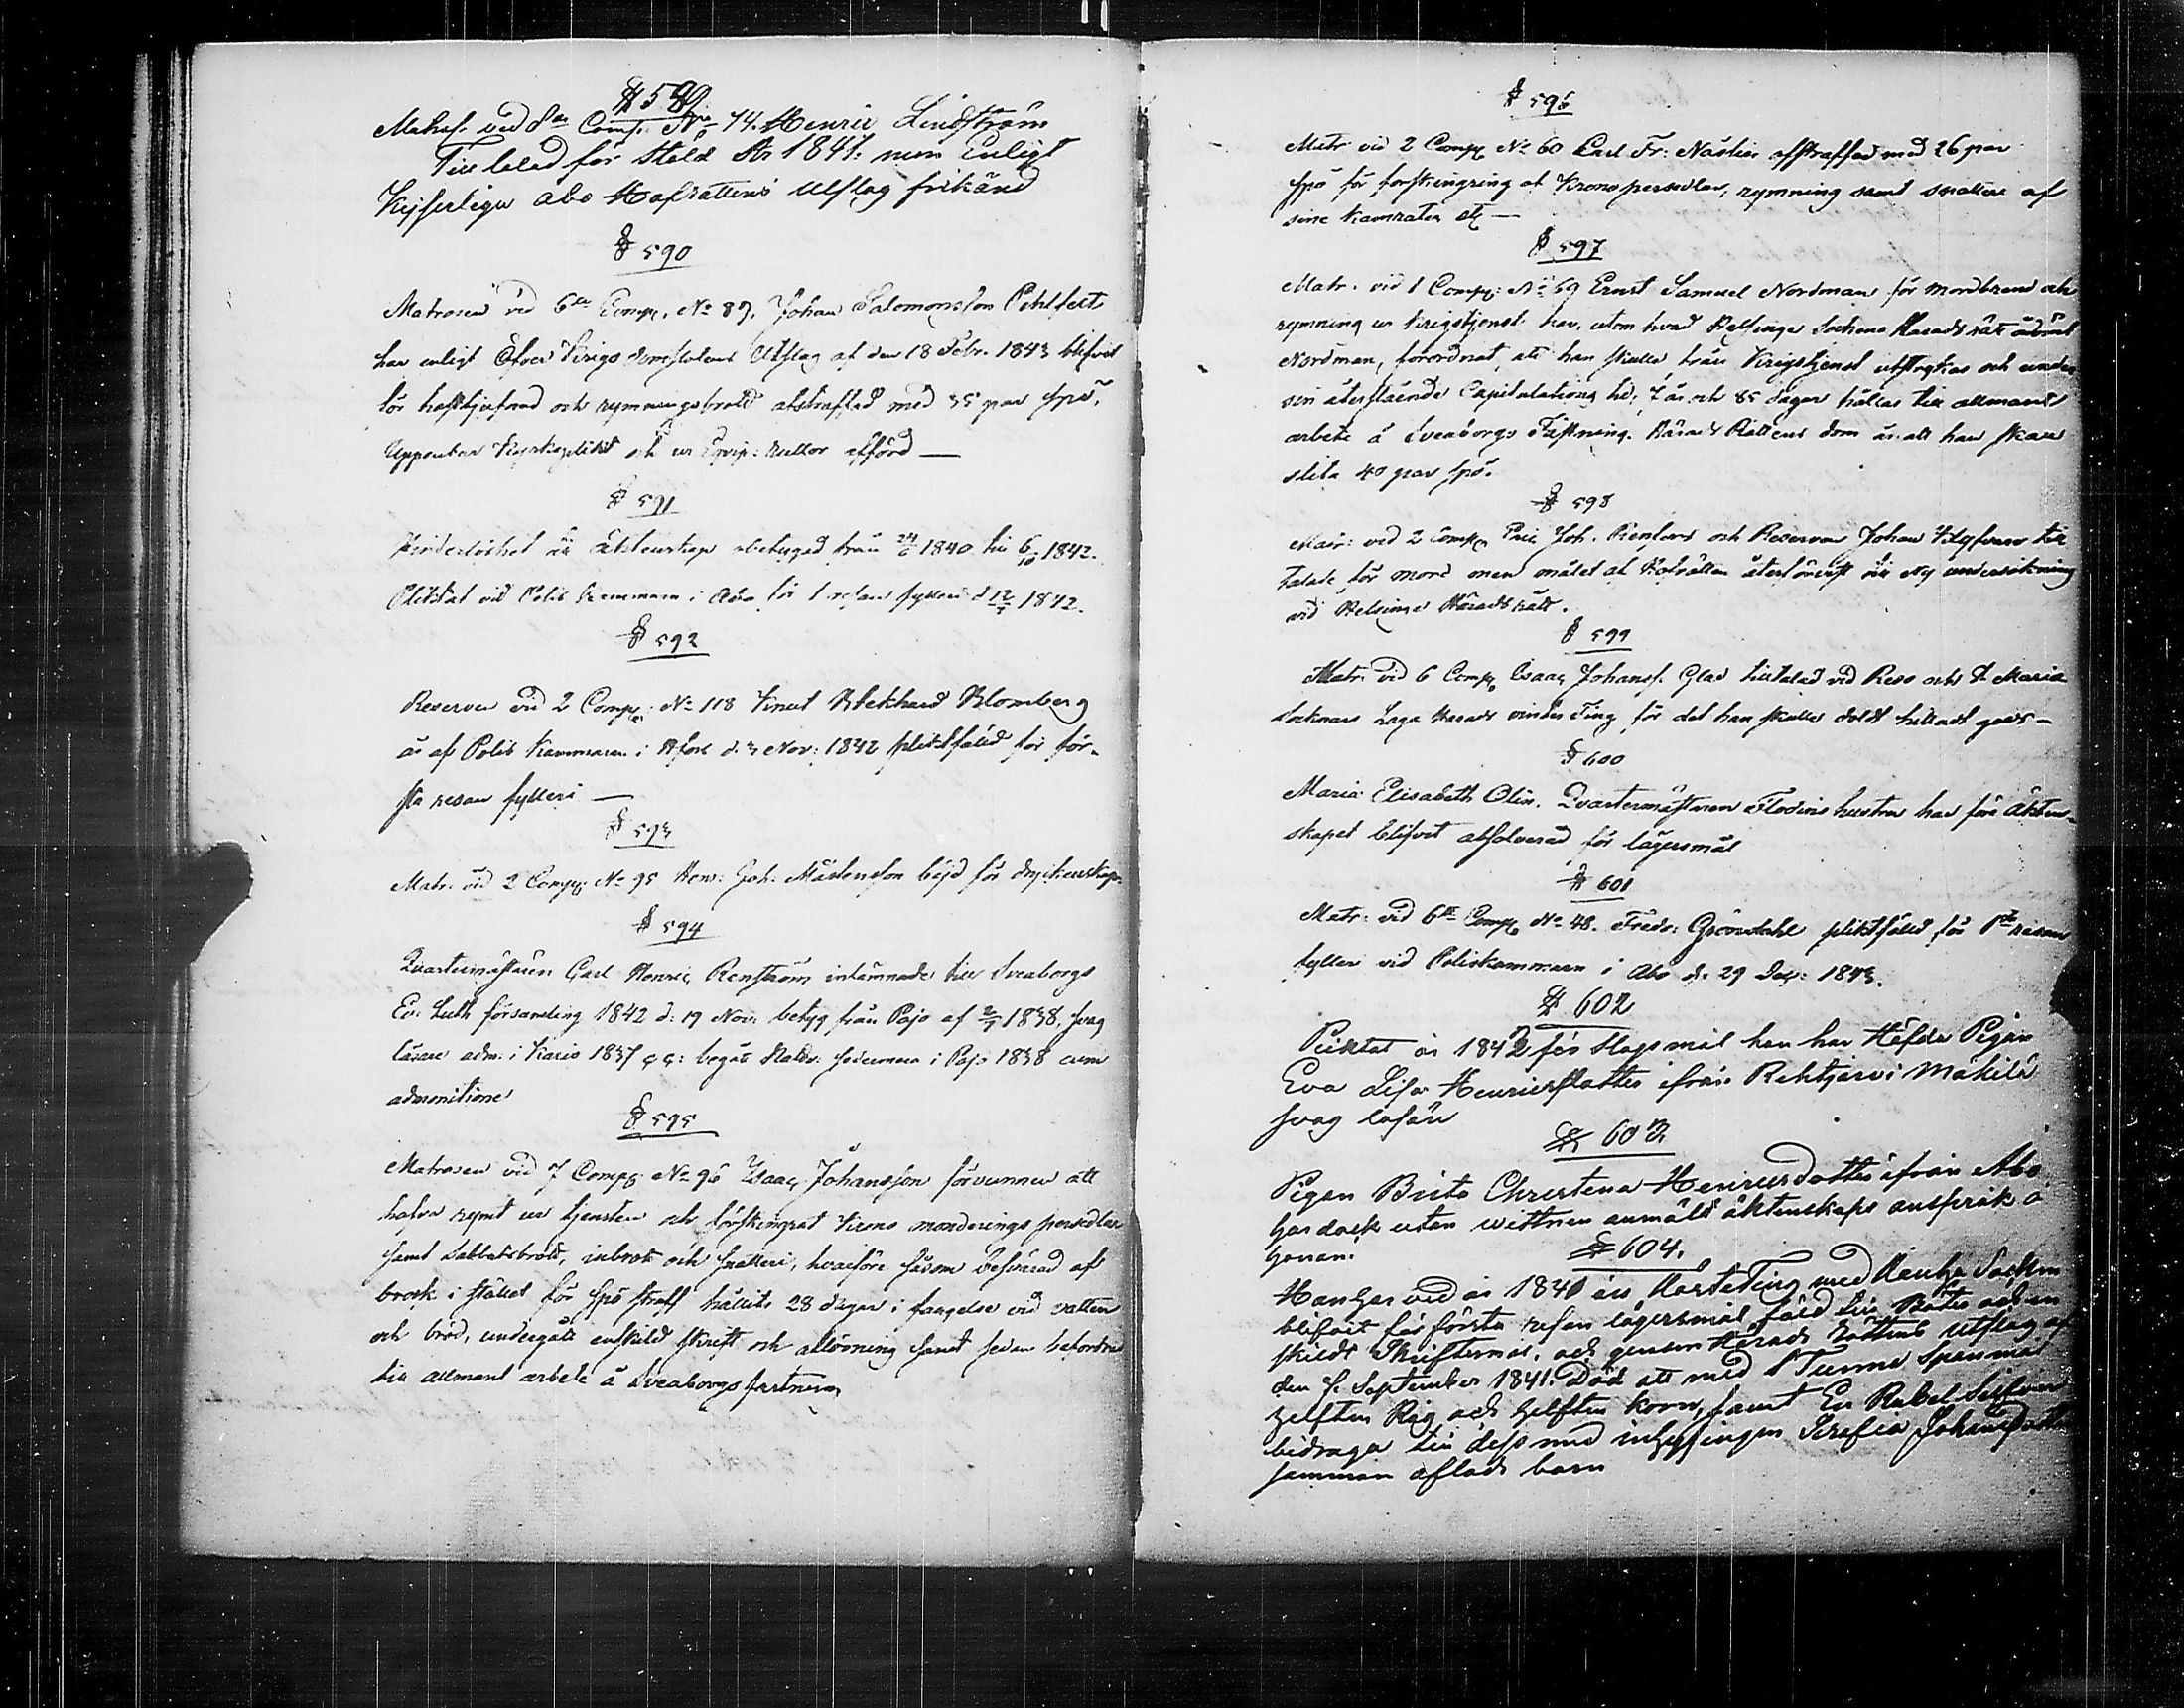 § 589
Matros. vid 8de Comp. No 74. Henric Lindström
Till talad för Stöld År 1841. men Enligt
Kejserliga Åbo Hofrättens Utslag frikänd
§ 590
Matrosen vid 6te Comp. No 89, Johan Salomonsson
har enligt Öfver Krigs domstolens Utslag af den 18 Febr. 1843 blifvit
för tjufnad och rymningsbrott afstraffad med 35 par spö,
Uppenbar Kyrkoplikt och ur Eqvip: rullor afförd —
§ 591
Hinderslöshet till äktenskap betygad från 24/6 1840 till 6/10 1842.
Pliktat vid Polis Kammaren i Åbo för 1 resan fylleri d 12/7 1842.
§ 592
Reserven vid 2 Comp: No 118 Knut Blomberg
är af Polis Kammaren i Hfors d. 3 Nov: 1842 pliktfälld för för-
sta resan fylleri —
§ 593
Matr. vid 2 Comp: No 95 Henr: Joh. Mårtensson böjd för dryckenskap.
§ 594
Qvartermästaren Carl Henric Renström inlämnade till Sveaborgs
Ev. Luth församling 1842 d: 19 Nov: betyg från Pojo af 2/7 1838, svag
läsare adm. i Karis 1837 i Pojo 1838 cum
admonitione
§ 595
Matrosen vid 7 Comp: No 96 Isaac Johansson förvunnen att
hafva rymt ur tjensten och förskingrat Krono monderings persedlar
samt sabbatsbrott, inbrott och snatteri, hvarföre såsom besvärad af
brock i stället för spö straff hållits 28 dagar i fängelse vid vatten
och bröd, undergått enskild skrift och aflösning samt sedan befordrad
till allmant arbete å Sveaborgs fästning
§ 596
Matr vid 2 Comp No 60 Carl Fr: afstraffad med 26 par
spö för förskingring af Krono persedlar, rymning samt snatteri af
sine kamrater etc —
§ 597
Matr. vid 1 Comp: No 59 Ernst Samuel Nordman för mordbrand och
rymning ur krigstjenst har, utom hvad Helsinge Sockens Häradsrätt ådömt
Nordman, förordnat, att han skulle från Krigstjenst utstrykas och under
sin återstående Capitulations tid, 7 år och 85 dagar hållas till allmant
arbete å Sveaborgs Fästning. Härads Rättens dom är att han skall
slita 40 par spö.
§ 598
Matr: vid 2 Comp Eric Joh. Renfors och Reserven Johan till
talade för mord men målet af Hofrätten återförvist till Ny undersökning
vid Helsinge Häradsrätt.
§ 599
Matr: vid 6 Comp Isaac Johanss. Glad tilltalad vid Reso och St Maria
Socknars Laga Härads vinter Ting för det han skulle doldt hittadt gods —
§ 600
Maria Elisabeth Olin. Qvartermästaren Flodins hustru har före Äkten-
skapet blifvit absolverad för lägersmål
§ 601
Matr: vid 6te Comp No 48. Fredr: Gröndahl pliktfälld för 1sta resan
fylleri vid Poliskammaren i Åbo d. 29 Dec: 1843.
§ 602
Pliktat år 1842 för Slagsmål han har Häfdat Pigan
Eva Lisa Henricsdotter ifrån Rehtjärvi Mäkilä
svag läsare
§ 603
Pigan Brita Christena Henricsdotter ifrån Åbo
har dock utan wittnen anmält äktenskaps anspråk å
honan.
§ 604.
Han har vid år 1840 års Ting med Sockn
blifvit för första resan lägersmål fäld till Böter och en
skildt Skriftermål, och genom Härads Rättens Utslag af
den 7. September 1841. Död att med 1 Tunna Spanmål
helften Råg och helften korn, samt En Rubel Silfver
bidraga till dess med inhysingen Serafia Johansdotter
samman aflade barn